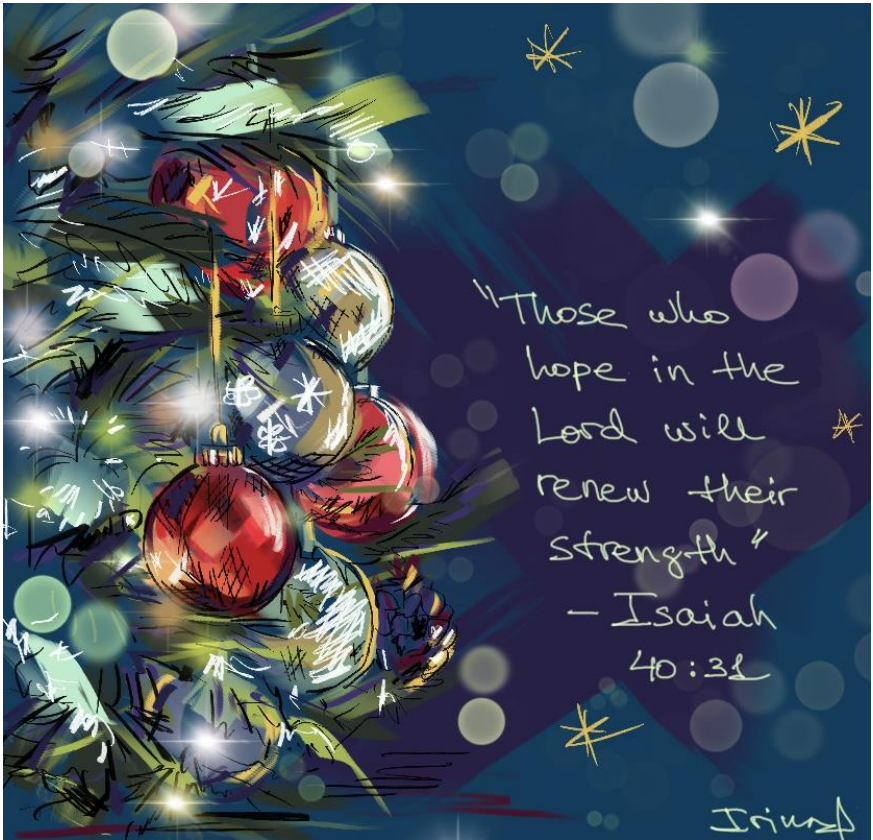 "Those who
hope in the
Lord will
renew their
strength"
- Isaiah
40:31